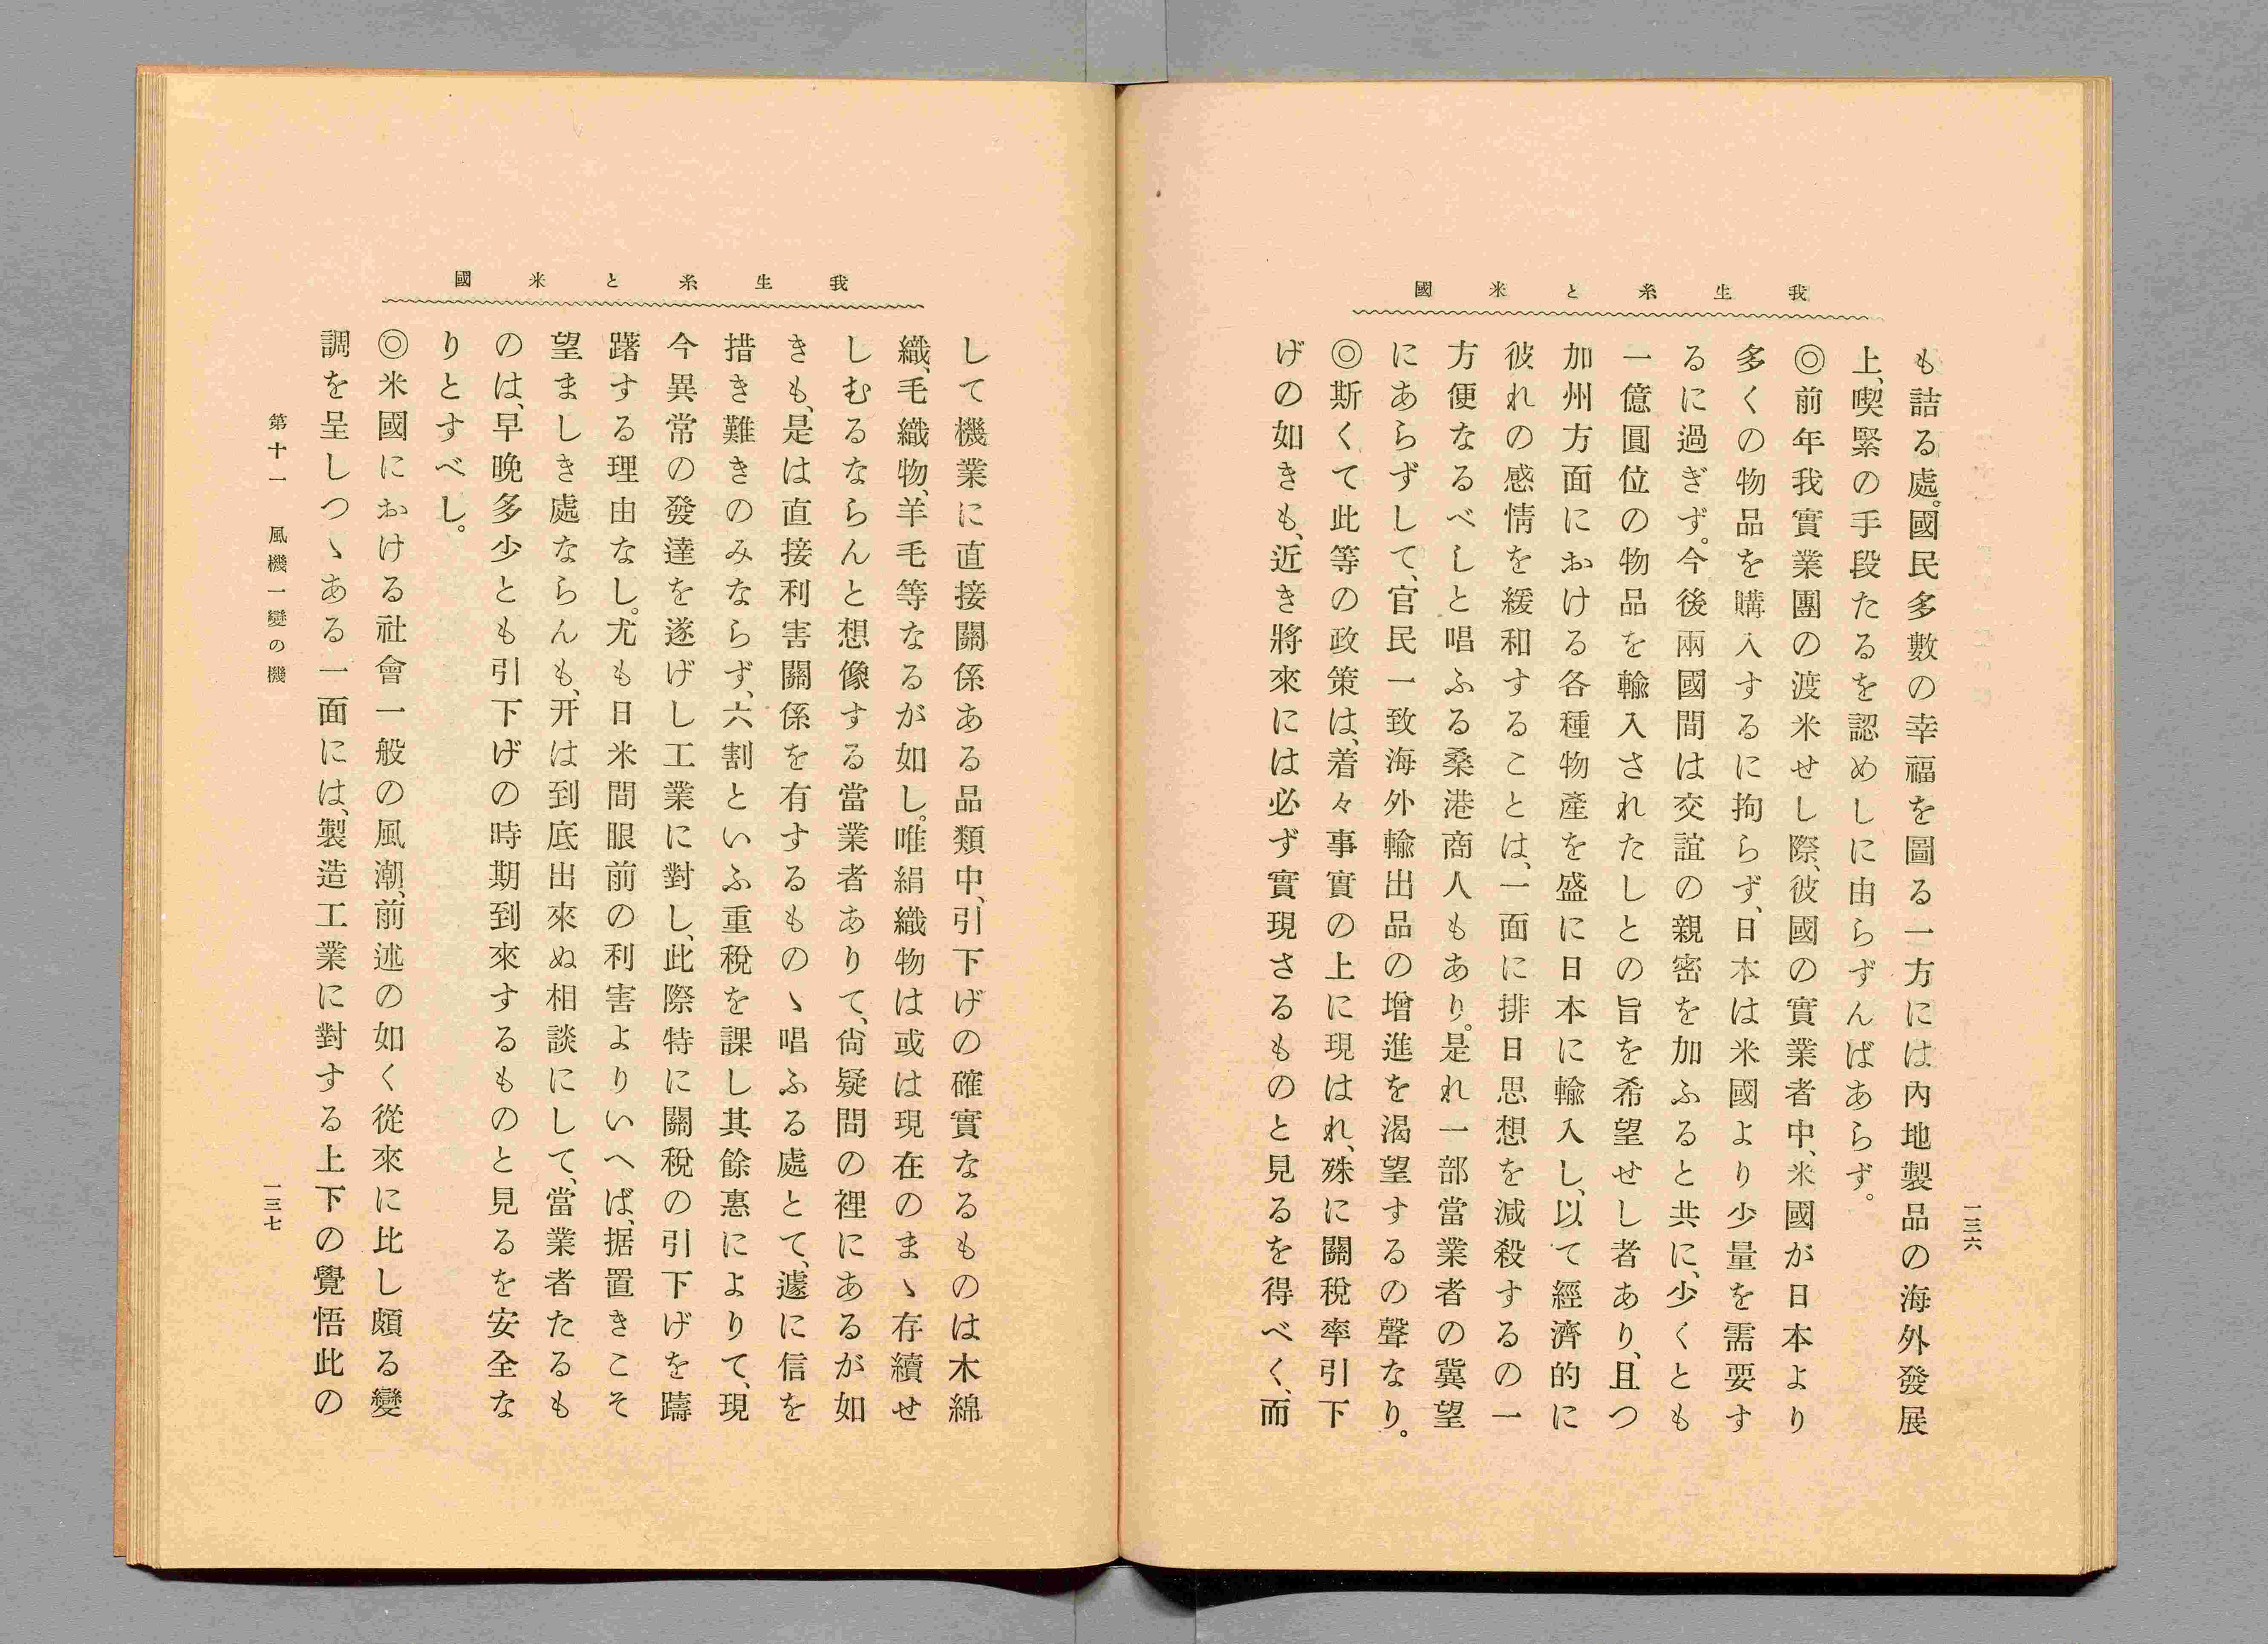 我生糸と米國
一三六
も詰る處。國民多數の幸福を圖る一方には內地製品の海外發展
上、喫緊の手段たるを認めしに由らずんばあらず。
◎前年我實業團の渡米せし際、彼國の實業者中、米國が日本より
多くの物品を購入するに拘らず、日本は米國より少量を需要す
るに過ぎず。今後兩國間は交誼の親密を加ふると共に、少くとも
一億圓位の物品を輸入されたしとの旨を希望せし者あり、且つ
加州方面における各種物產を盛に日本に輸入し、以て經濟的に
彼れの感情を緩和することは、一面に排日思想を減殺するの一
方便なるべしと唱ふる桑港商人もあり。是れ一部當業者の冀望
にあらずして、官民一致海外輸出品の增進を渴望するの聲なり。
◎斯くて此等の政策は、着々事實の上に現はれ、殊に關稅率引下
げの如きも、近き將來には必ず實現さるものと見るを得べく、而
我生糸と米國
して機業に直接關係ある品類中、引下げの確實なるものは木綿
織、毛織物、羊毛等なるが如し。唯絹織物は或は現在のまゝ存續せ
しむるならんと想像する當業者ありて、尙疑問の裡にあるが如
きも、是は直接利害關係を有するものゝ唱ふる處とて、遽に信を
措き難きのみならず、六割といふ重稅を課し其餘惠によりて、現
今異常の發達を遂げし工業に對し、此際特に關稅の引下げを躊
躇する理由なし。尤も日米間眼前の利害よりいへば、据置きこそ
望ましき處ならんも、开は到底出來ぬ相談にして、當業者たるも
のは、早晚多少とも引下げの時期到來するものと見るを安全な
りとすべし。
◎米國における社會一般の風潮、前述の如く從來に比し頗る變
調を呈しつゝある一面には、製造工業に對する上下の覺悟此の
第十一　風機一變の機
一三七